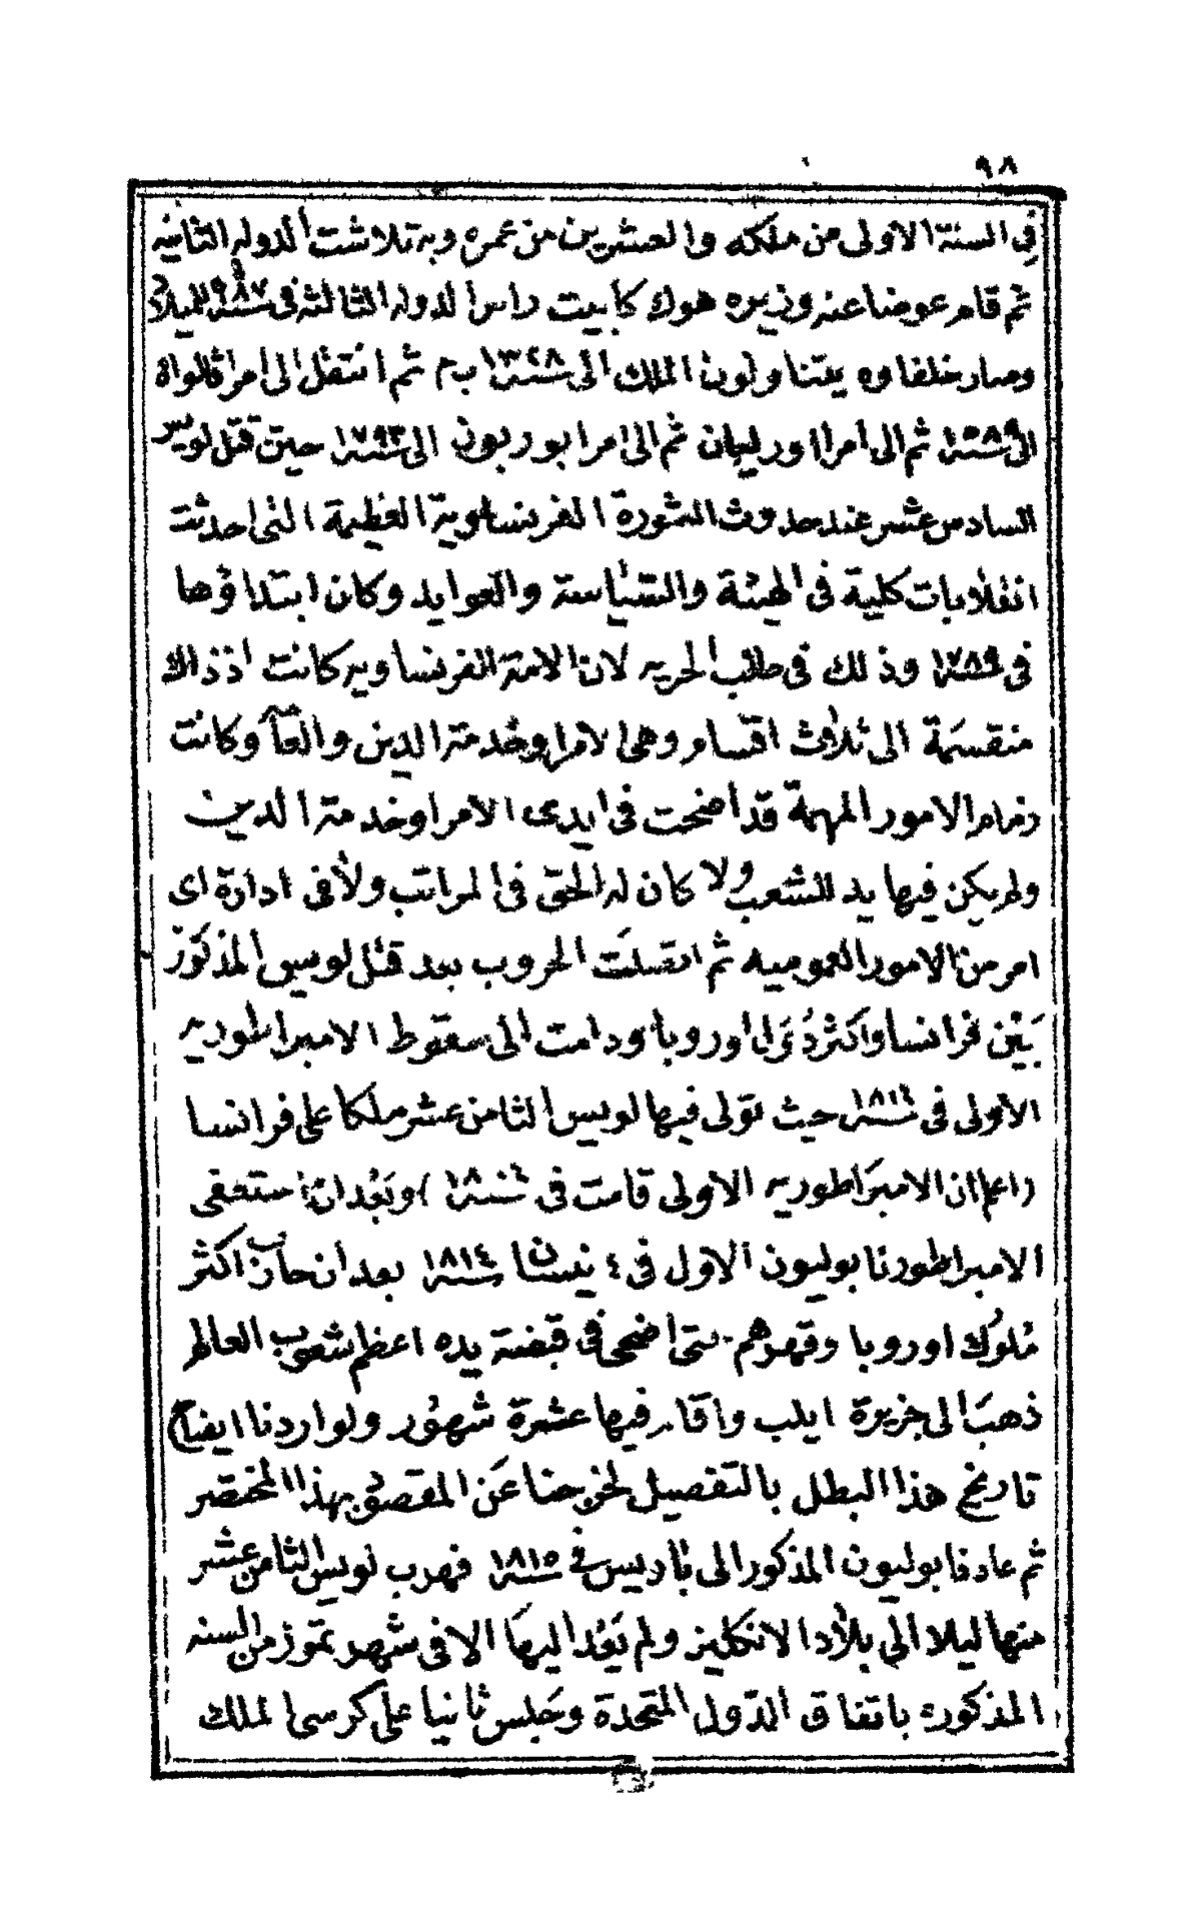 ٩٨
في السنة الاولى من ملكه والعشرين من عمره وبه تلاشت الدوله الثانيه
ثم قام عوضا عنه وزيره هوك كابيت راس الدوله الثالثه في سنة ٩٨٧ للميلاد
وصار خلفاوه يتناولون الملك الى سنة ١٣٢٨ ب م ثم انتقل الى امرا فالواة
الى سنة ١٥٨٩ ثم الى امرا اورليان ثم الى امرا بوربون الى سنة ١٧٩٣ حين قتل لويس
السادس عشر عند حدوث الثورة الفرنساوية العظيمة التي احدثت
انقلابات كلية في الهيئة والسياسة والعوايد وكان ابتداؤها
في سنة ١٧٨٩ وذلك في طلب الحريه لان الامة الفرنساويه كانت اذ ذاك
منقسمة الى ثلاث اقسام وهي الامرا وخدمة الدين والعامة وكانت
زمام الامور المهمة قد اضحت في ايدي الامرا وخدمة الدين
ولم يكن فيها يد للشعب ولا كان له الحق في المراتب ولا في ادارة اي
امر من الامور العموميه ثم اتصلت الحروب بعد قتل لويس المذكور
بين فرانسا واكثر دول اوروبا ودامت الى سقوط الامبراطوريه
الاولى في سنة ١٨١٤ حيث تولى فيها لويس الثامن عشر ملكا على فرانسا
(اعلم ان الامبراطوريه الاولى قامت في سنة ١٨٠٤) وبعد ان استعفى
الامبراطور نابوليون الاول في ٤ نيسان سنة ١٨١٤ بعد ان حارب اكثر
ملوك اوروبا وقهرهم حتى اضحى في قبضة يده اعظم شعوب العالم
ذهب الى جزيرة ايلب واقام فيها عشرة شهور ولو اردنا ايضاح
تاريخ هذا البطل بالتفصيل لخرجنا عن المقصود بهذا المختصر
ثم عاد نابوليون المذكور الى باريس في سنة ١٨١٥ فهرب لويس الثامن عشر
منها ليلا الى بلاد الانكليز ولم يعد اليها الا في شهر تموز من السنه
المذكوره باتفاق الدول المتحدة وجلس ثانيا على كرسي الملك